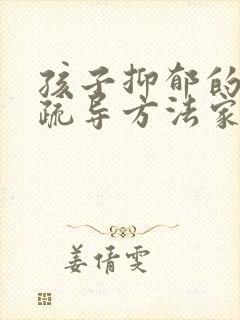 孩子抑郁的
疏导方法家
姜倩雯